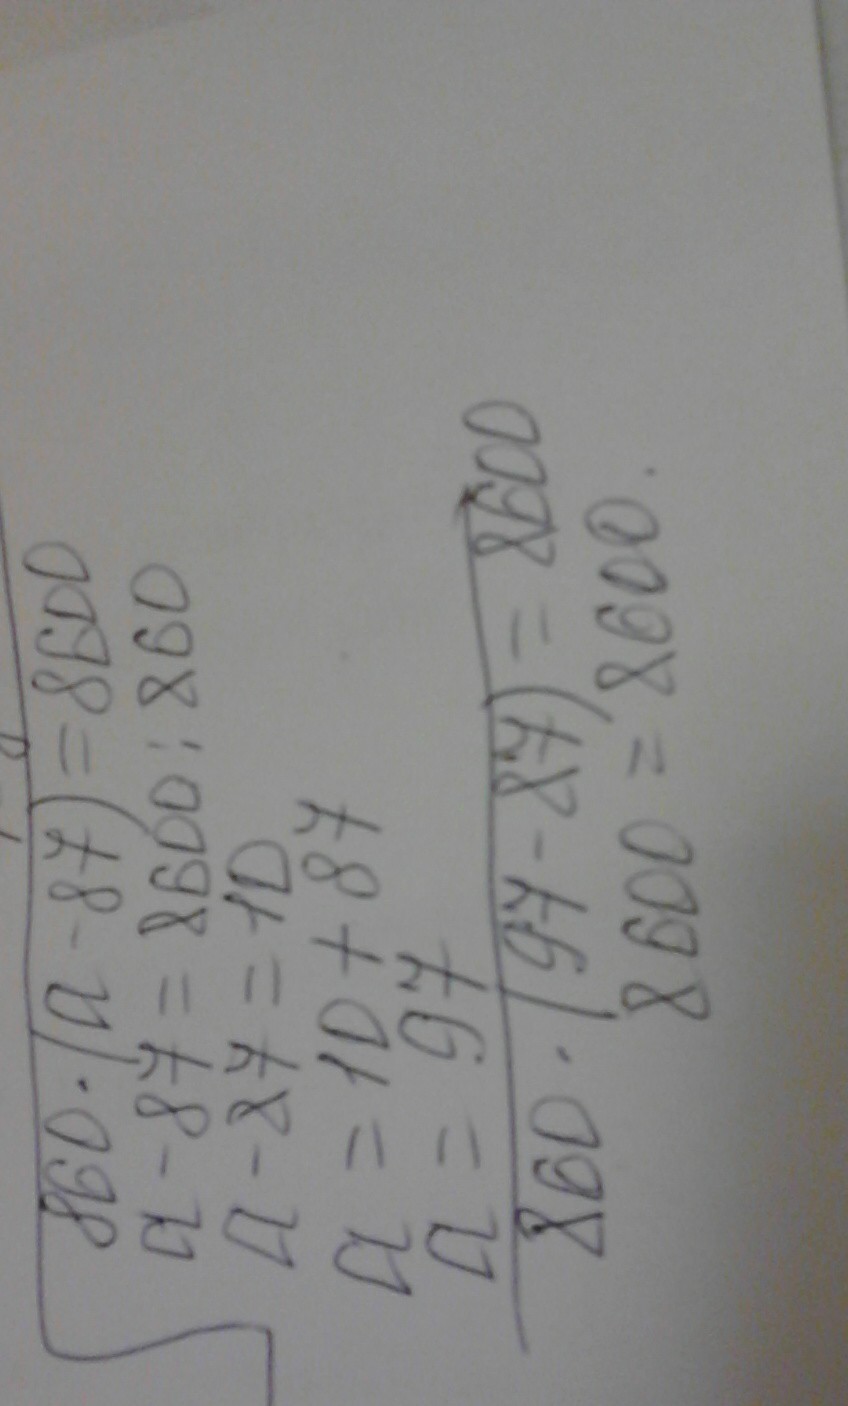 860·(a-87)=8600
a-87=8600:860
a-87=10
a=10+87
a=97
860·(97-87)=8600
8600=8600.